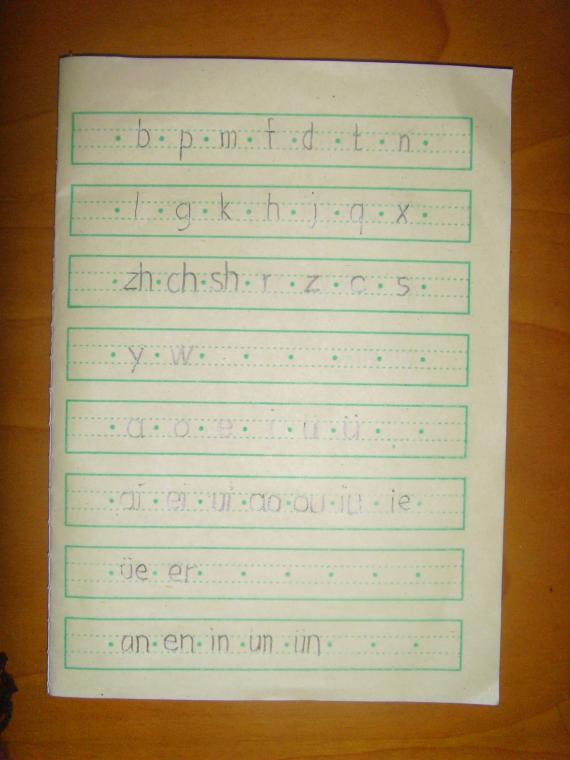 b p m f d t n
l g k h j q x
zh ch sh r z c s
y w
a o e i u ü
ai ei ui ao ou iu ie
üe er
an en in un ün